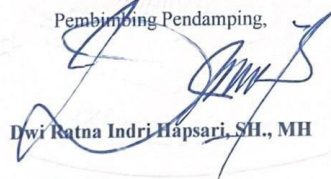 Pembimbing Pendamping,
Dwi Ratna Indri Hapsari, SH., MH